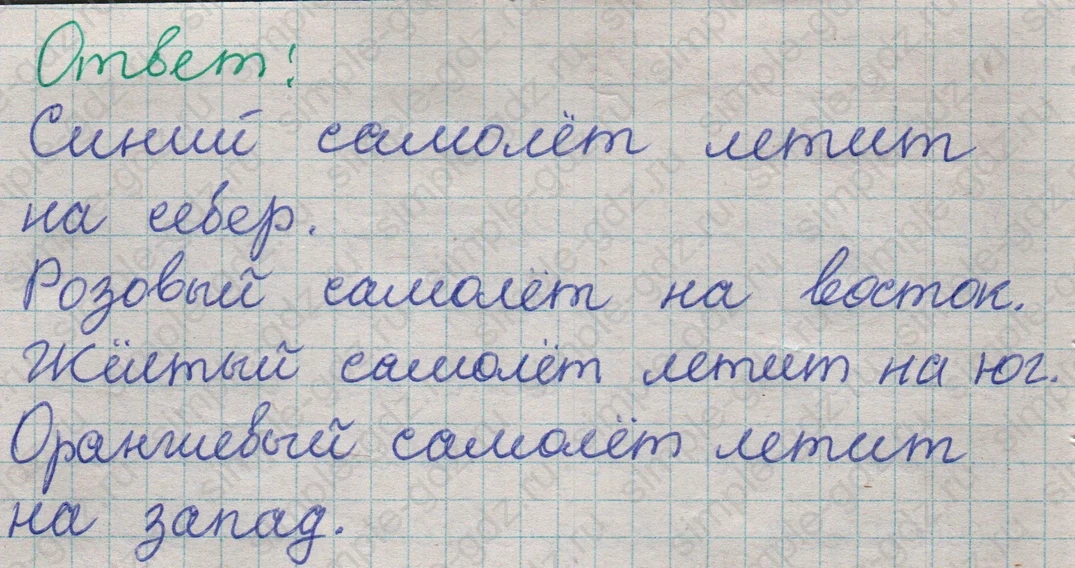 Ответ:
Синий самолёт летит
на север.
Розовый самолёт на восток.
Жёлтый самолёт летит на юг.
Оранжевый самолёт летит
на запад.
simple-gdz.ru